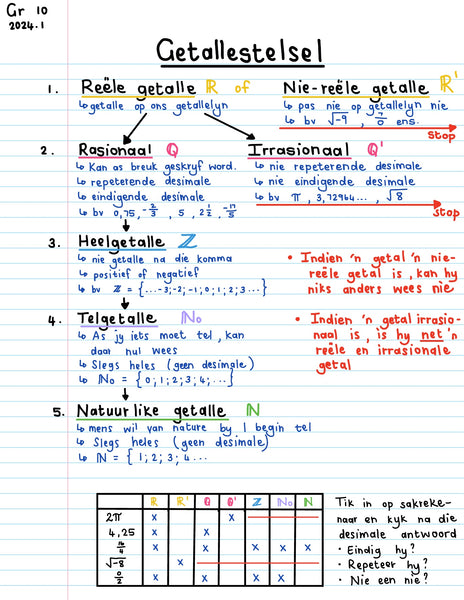 Gr 10
2024.1
Getallestelsel
1. Reële getalle ℝ of Nie-reële getalle ℝ'
↳ getalle op ons getallelyn
↳ pas nie op getallelyn nie
↳ bv √-9 , 7/0 ens.
Stop
2. Rasionaal ℚ Irrasionaal ℚ'
↳ Kan as breuk geskryf word.
↳ repeterende desimale
↳ eindigende desimale
↳ bv 0,75, -2/3 , 5 , 2 1/2 , -17/5
↳ nie repeterende desimale
↳ nie eindigende desimale
↳ bv π , 3,72964... , √8
Stop
3. Heelgetalle ℤ
↳ nie getalle na die komma
↳ positief of negatief
↳ bv ℤ = {...-3;-2;-1;0;1;2;3...}
• Indien 'n getal 'n nie-
reële getal is , kan hy
niks anders wees nie
4. Telgetalle ℕ₀
↳ As jy iets moet tel , kan
daar nul wees
↳ Slegs heles (geen desimale)
↳ ℕ₀ = {0;1;2;3;4;...}
• Indien 'n getal irrasio-
naal is , is hy net 'n
reële en irrasionale
getal
5. Natuurlike getalle ℕ
↳ mens wil van nature by 1 begin tel
↳ Slegs heles (geen desimale)
↳ ℕ = {1;2;3;4...
ℝ ℝ' ℚ ℚ' ℤ ℕ₀ ℕ
2π x x
4,25 x x
16/4 x x x x x
√-8 x
0/2 x x x x
Tik in op sakreke-
naar en kyk na die
desimale antwoord
• Eindig hy?
• Repeteer hy?
• Nie een nie?